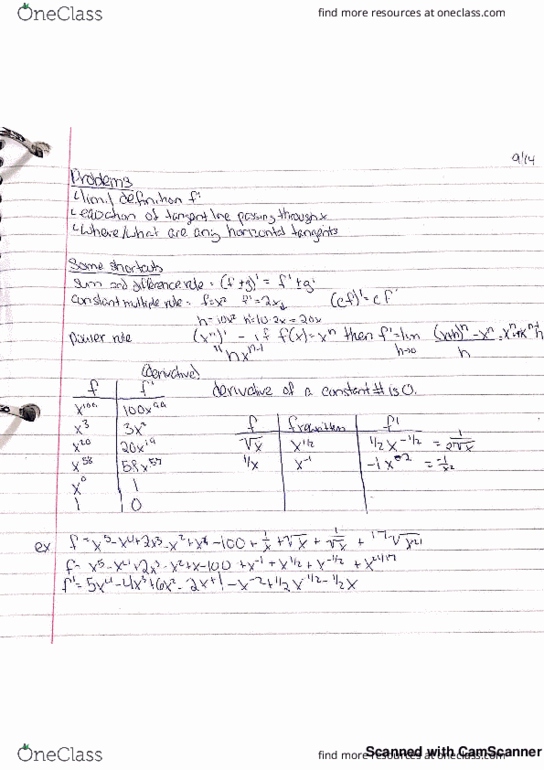 OneClass
find more resources at oneclass.com
9/14
Problems
↳ lim/ definition f'
↳ equation of tangent line passing through x
↳ where/what are any horizontal tangents
Some shortcuts
sum and difference rule: (f+g)' = f'+g'
constant multiple rule: f=x² f'=2x (cf)'=cf'
h=10x² h'=10·2x=20x
power rule (xⁿ)' - if f(x)=xⁿ then f'=lim h→0 (x+h)ⁿ-xⁿ / h
" nxⁿ⁻¹
(derivative)
f f' derivative of a constant # is 0.
x¹⁰⁰ 100x⁹⁹
x³ 3x²
x²⁰ 20x¹⁹
x⁵⁸ 58x⁵⁷
x⁰ 1
1 0
f f rewritten f'
√x x^1/2 1/2 x^-1/2 = 1/2√x
1/x x⁻¹ -1x⁻² = -1/x²
ex f = x⁵-x⁴+2x³-x²+x-100+1/x+√x+1/√x+¹⁷√x²¹
f= x⁵-x⁴+2x³-x²+x-100+x⁻¹+x^1/2+x^-1/2
f'= 5x⁴-4x³+6x²-2x+1-x⁻²+1/2x^-1/2-1/2x
OneClass
find more resources at oneclass.com
Scanned with CamScanner